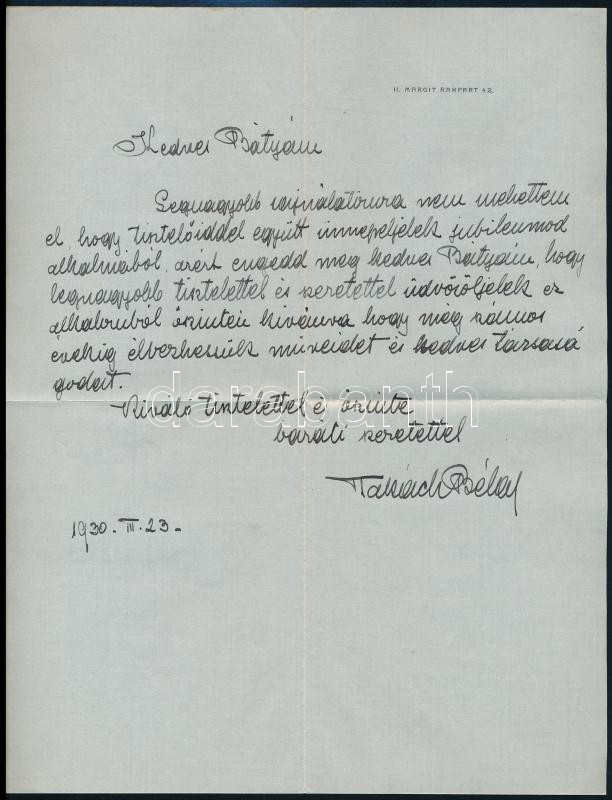 II. MARGIT RAKPART 42.
Kedves Bátyám
Legnagyobb sajnálatomra nem mehettem
el, hogy tisztelőiddel együtt ünnepeljelek jubileumod
alkalmából, azért engedd meg kedves Bátyám, hogy
legnagyobb tisztelettel és szeretettel üdvözöljelek ez
alkalomból őszintén kivánva hogy még számos
évekig élvezhessük műveidet és kedves társasá
godat.
Kiváló tisztelettel és őszinte
baráti szeretettel
Takách Béla
1930. III. 23.
darabanth